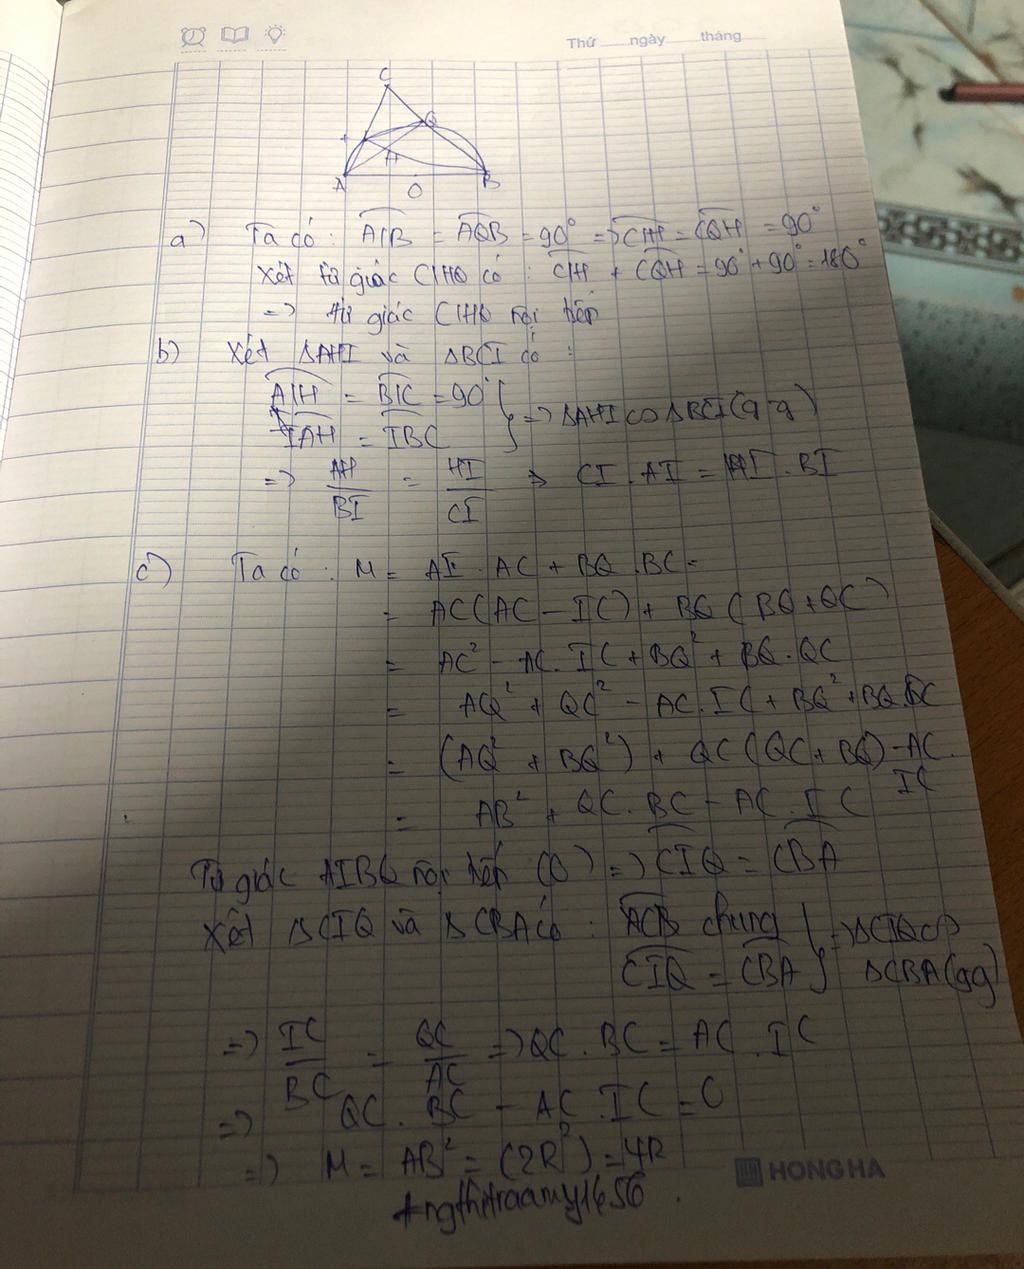 Thứ ngày tháng
C
Q
I
H
A
O
B
a) Ta có: AIB = AQB = 90° => CIH = CQH = 90°
Xét tứ giác CIHQ có: CIH + CQH = 90° + 90° = 180°
=> tứ giác CIHQ nội tiếp
b) Xét ΔAHI và ΔBCI có:
AIH = BIC = 90° } => ΔAHI ∽ ΔBCI (g-g)
IAH = IBC
=> AI/BI = HI/CI => CI . AI = HI . BI
c) Ta có: M = AI . AC + BQ . BC =
= AC(AC - IC) + BQ (BQ + QC)
= AC² - AC . IC + BQ² + BQ . QC
= AQ² + QC² - AC . IC + BQ² + BQ . QC
= (AQ² + BQ²) + QC (QC + BQ) - AC .
IC
= AB² + QC . BC - AC . IC
Tứ giác AIBQ nội tiếp (O) => CIQ = CBA
Xét ΔCIQ và ΔCBA có: ACB chung } => ΔCIQ ∽
CIQ = CBA ΔCBA (gg)
=> IC/BC = QC/AC => QC . BC = AC . IC
=> QC . BC - AC . IC = 0
=> M = AB² = (2R²) = 4R
HONG HA